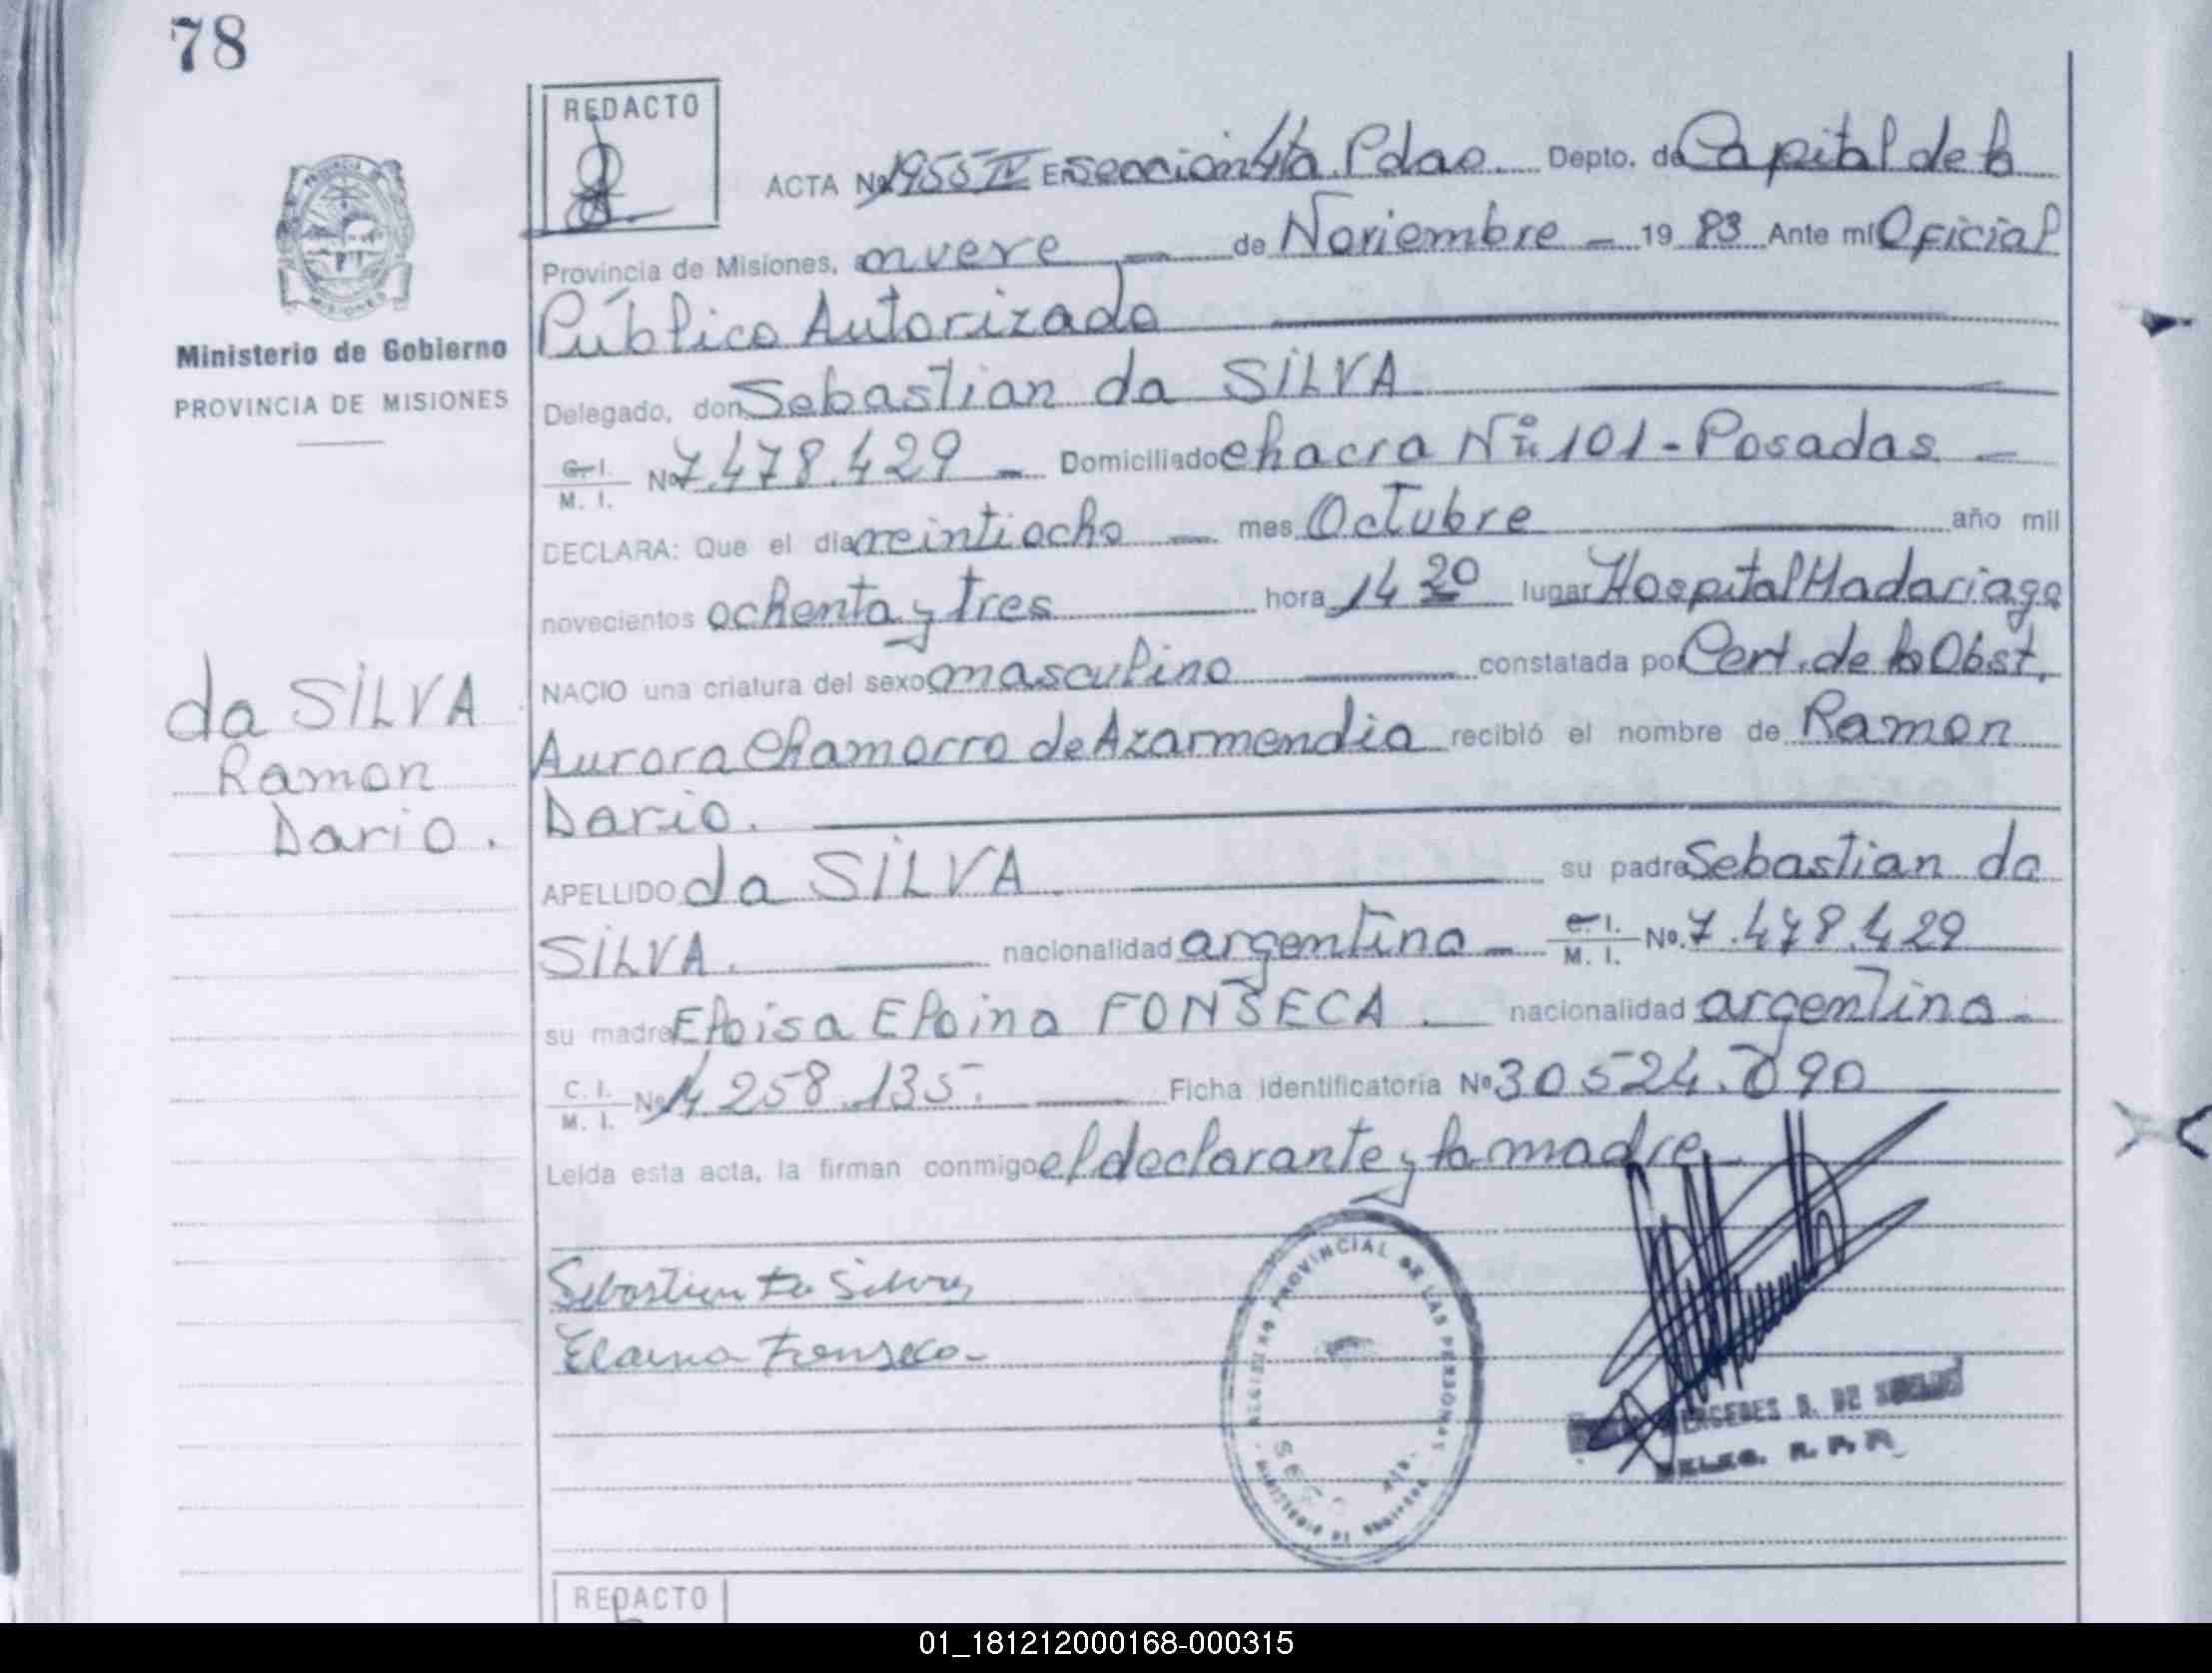 78
REDACTO
ACTA Nº 1955 IV En Seccion 4ta. Pdas. Depto. de Capital de la
Provincia de Misiones, a nueve de Noviembre 1983 Ante mí Oficial
Público Autorizado
Ministerio de Gobierno
PROVINCIA DE MISIONES
Delegado, don Sebastian da SILVA
C. I. / M. I. Nº 7.478.429 Domiciliado chacra Nº 101 - Posadas
DECLARA: Que el día veintiocho mes Octubre año mil
novecientos ochenta y tres hora 14 20 lugar Hospital Madariaga
NACIO una criatura del sexo masculino constatada por Cert. de la Obst.
Aurora Chamorro de Azarmendia recibió el nombre de Ramon
Dario.
da SILVA
Ramon
Dario.
APELLIDO da SILVA su padre Sebastian da
SILVA. nacionalidad argentina C. I. / M. I. Nº 7.478.429
su madre Eloisa Eloina FONSECA. nacionalidad argentina
C. I. / M. I. Nº 14 258.135. Ficha identificatoria Nº 30524.090
Leída esta acta, la firman conmigo el declarante y la madre
Sebastian Da Silva
Elaina Fonseca
REGISTRO PROVINCIAL DE LAS PERSONAS
MINISTERIO DE
MERCEDES DE
DELEG. R. P. P.
REDACTO
01_181212000168-000315